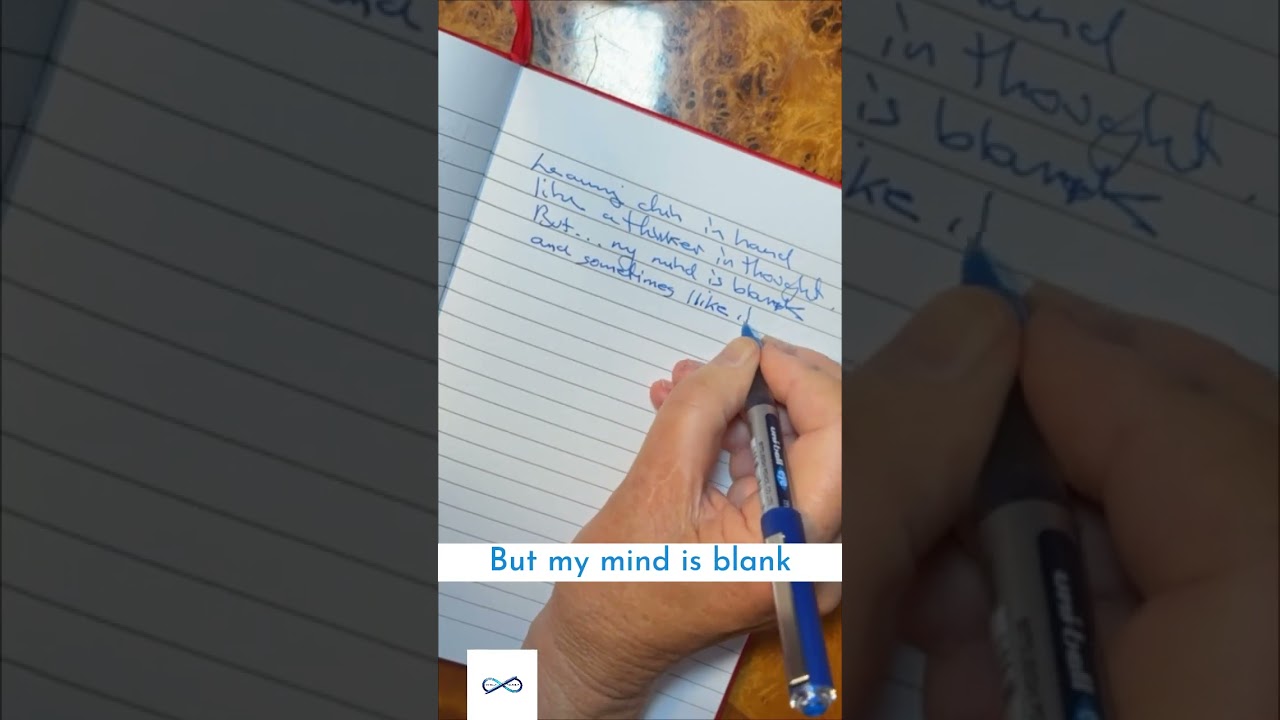 Leaning chin in hand
like a thinker in thought.
But... my mind is blank
and sometimes I like
But my mind is blank
uni-ball eye